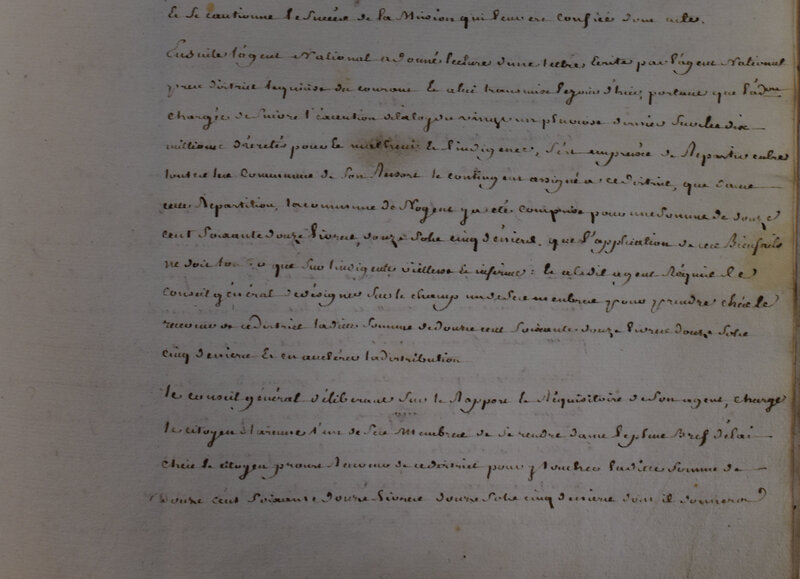 Et se cautionne le succès de la Mission qui leur est confiée dont acte.
Ensuite l'agent National a donné lecture d'une lettre Ecrite par l'agent National
près ce district le quinze du courant Et a lui transmise le jour d'hier, portant que l'adon
chargée de suivre l'Execution de la loy du vingt un pluviose dernier sur les dix
millions décretés pour le malheur Et l'indigence, s'est empressée de Repartir entre
toutes les Communes de son Ressort le contingent assigné a ce district, que dans
cette Répartition, la commune de Nogent y a été comprise pour une somme de douze
cent soixante douze livres, douze sols cinq deniers. que l'application de ces Bienfaits
ne doit que sur l'indigente vieillesse Et infirme: Et a ledit agent Réquis le
Conseil général de désigner sur le champ un de ses membres pour prendre chés le
receveur de ce district ladite somme de douze cent soixante douze livres douze sols
cinq deniers Et en accelérer la distribution
le conseil général déliberant sur le Rapport Et Réquisitoire de son agent, charge
le citoyen l'un de ses Membres de se rendre dans le plus Bref délai
chés le citoyen Receveur de ce district pour y toucher ladite somme de
douze cent soixante douze livres douze sols cinq deniers dont il donnera